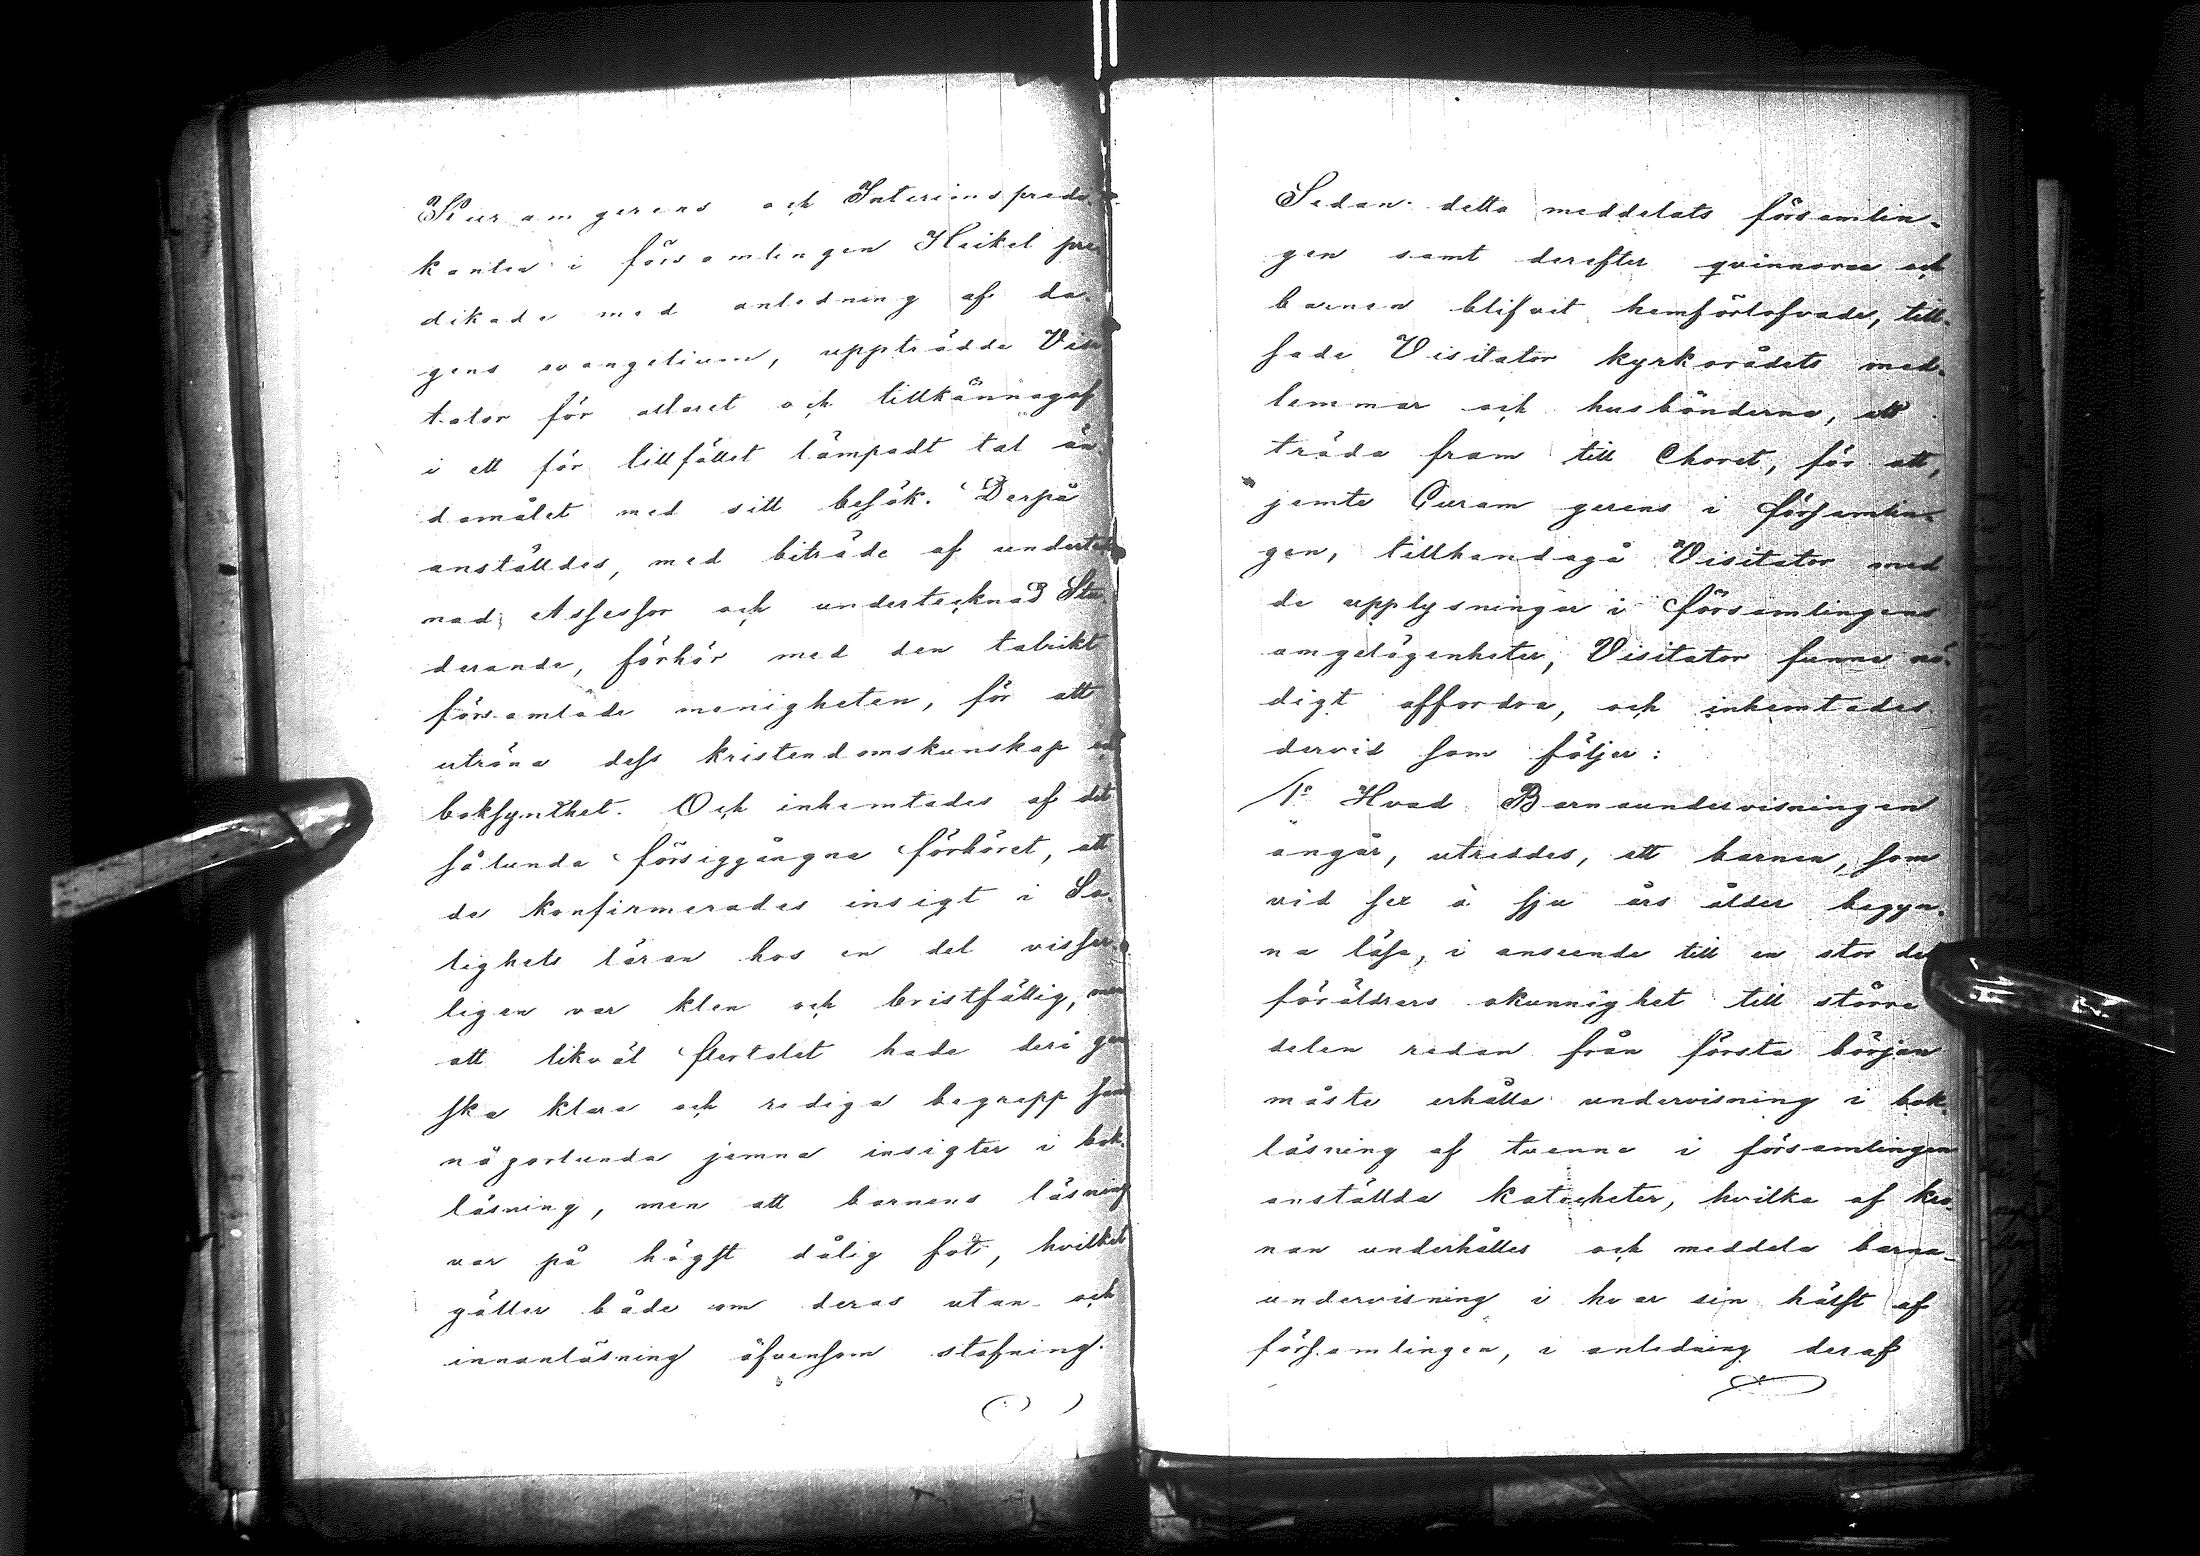 Kuram gerens och Interimspredi-
kanten i församlingen Heikel pre-
dikade med anledning af da-
gens evangelium, uppträdde Visi-
tator för altaret och tillkännagaf
i ett för tillfället lämpadt tal än-
damålet med sitt besök. Derpå
anställdes, med biträde af underteck-
nad Assessor och undertecknad Stu-
derande, förhör med den talrikt
församlade menigheten, för att
utröna dess kristendomskunskap och
boksynthet. Och inhemtades af det
sålunda försiggångna förhöret, att
de konfirmerades insigt i Sa-
lighets läran hos en del visser-
ligen var klen och bristfällig, men
att likväl flertalet hade deri gan-
ska klara och rediga begrepp samt
någorlunda jemna insigter i bok-
läsning, men att barnens läsning
var på högst dålig fot, hvilket
gäller både om deras utan- och
innanläsning äfvensom stafning.
Sedan detta meddelats församlin-
gen samt derefter qvinnorna och
barnen blifvit hemförlofvade, till-
sade Visitator kyrkorådets med-
lemmar och husbönderna, att
träda fram till Choret, för att,
jemte Curam gerens i församlin-
gen, tillhandagå Visitator med
de upplysningar i församlingens
angelägenheter, Visitator funne nö-
digt affordra, och inhemtades
dervid som följer:
1o Hvad Barnaundervisningen
angår, utreddes, att barnen, som
vid sex à sju års ålder begyn-
na läsa, i anseende till en stor del
föräldrars okunnighet till större
delen redan från första början
måste erhålla undervisning i bok-
läsning af tvenne i församlingen
anställda katecheter, hvilka af kro-
nan underhålles och meddela barna-
undervisning i hvar sin hälft af
församlingen, i anledning deraf